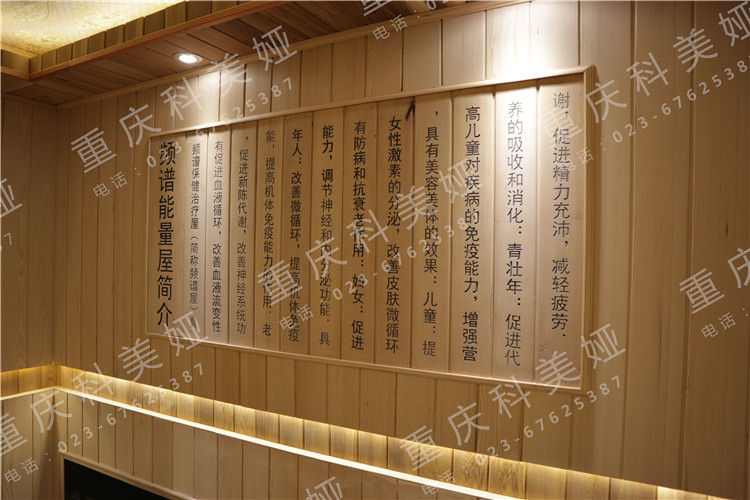 频谱能量屋简介
频谱保健治疗屋（简称频谱屋）
有促进血液循环，改善血液流变性
，促进新陈代谢，改善神经系统功
能，提高机体免疫能力的作用．老
年人：改善微循环，提高机体免疫
能力，调节神经和内分泌功能．具
有防病和抗衰老作用：妇女：促进
女性激素的分泌，改善皮肤微循环
，具有美容美体的效果：儿童：提
高儿童对疾病的免疫能力，增强营
养的吸收和消化：青壮年：促进代
谢，促进精力充沛，减轻疲劳．
重庆科美娅
电话：023-67625387
重庆科美娅
电话：023-67625387
重庆科美娅
电话：023-67625387
重庆科美娅
电话：023-67625387